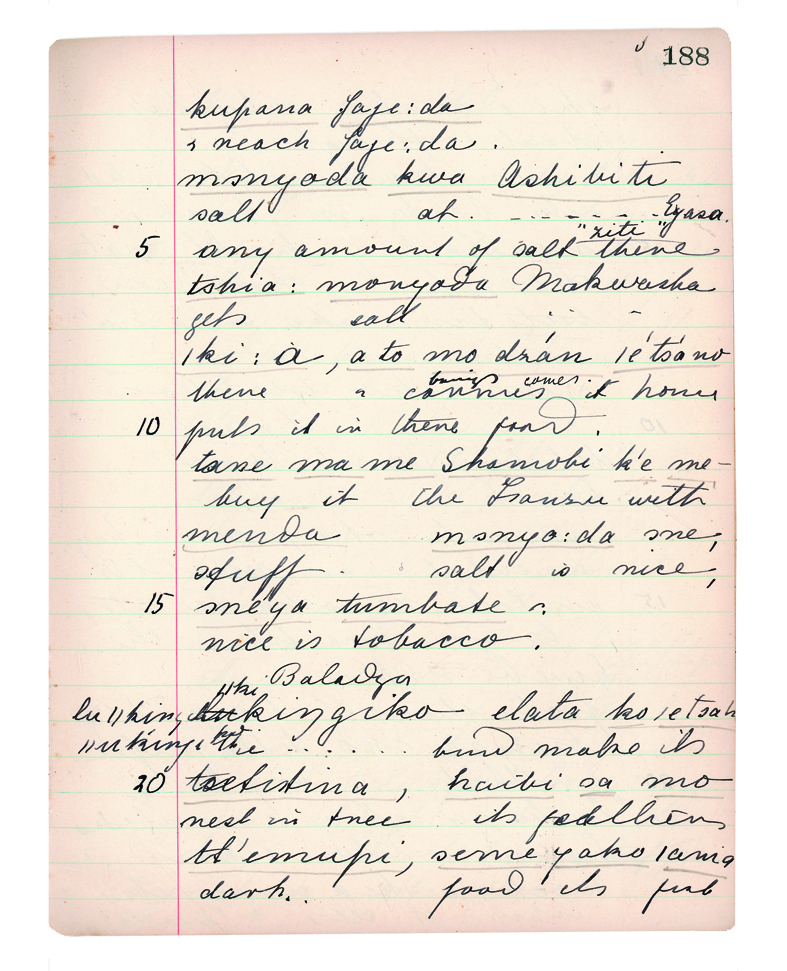 188
kupana Jage:da
& reach Jage:da.
msnyoda kwa Ashibiti
salt at. - - - - - - Eyasa.
"ziti"
5 any amount of salt there
tshia: monyoda Makwasha
gets salt " "
iki:a, ato mo dzán ié tsáno
brings comes.
there & it home
10 puts it in there food.
tane ma me Shamobi k'e me-
buy it the Isanzu with
menda msnyo:da sne,
stuff. salt is nice,
15 sneya tumbate
nice is tobacco.
"ki Baladza
kingiko elata ko ietsah
the ...... bird make its
20 tsetitina, haibi sa mo
nest in tree its feathers
tt'emupi, seme yako iania
dark. food its fish